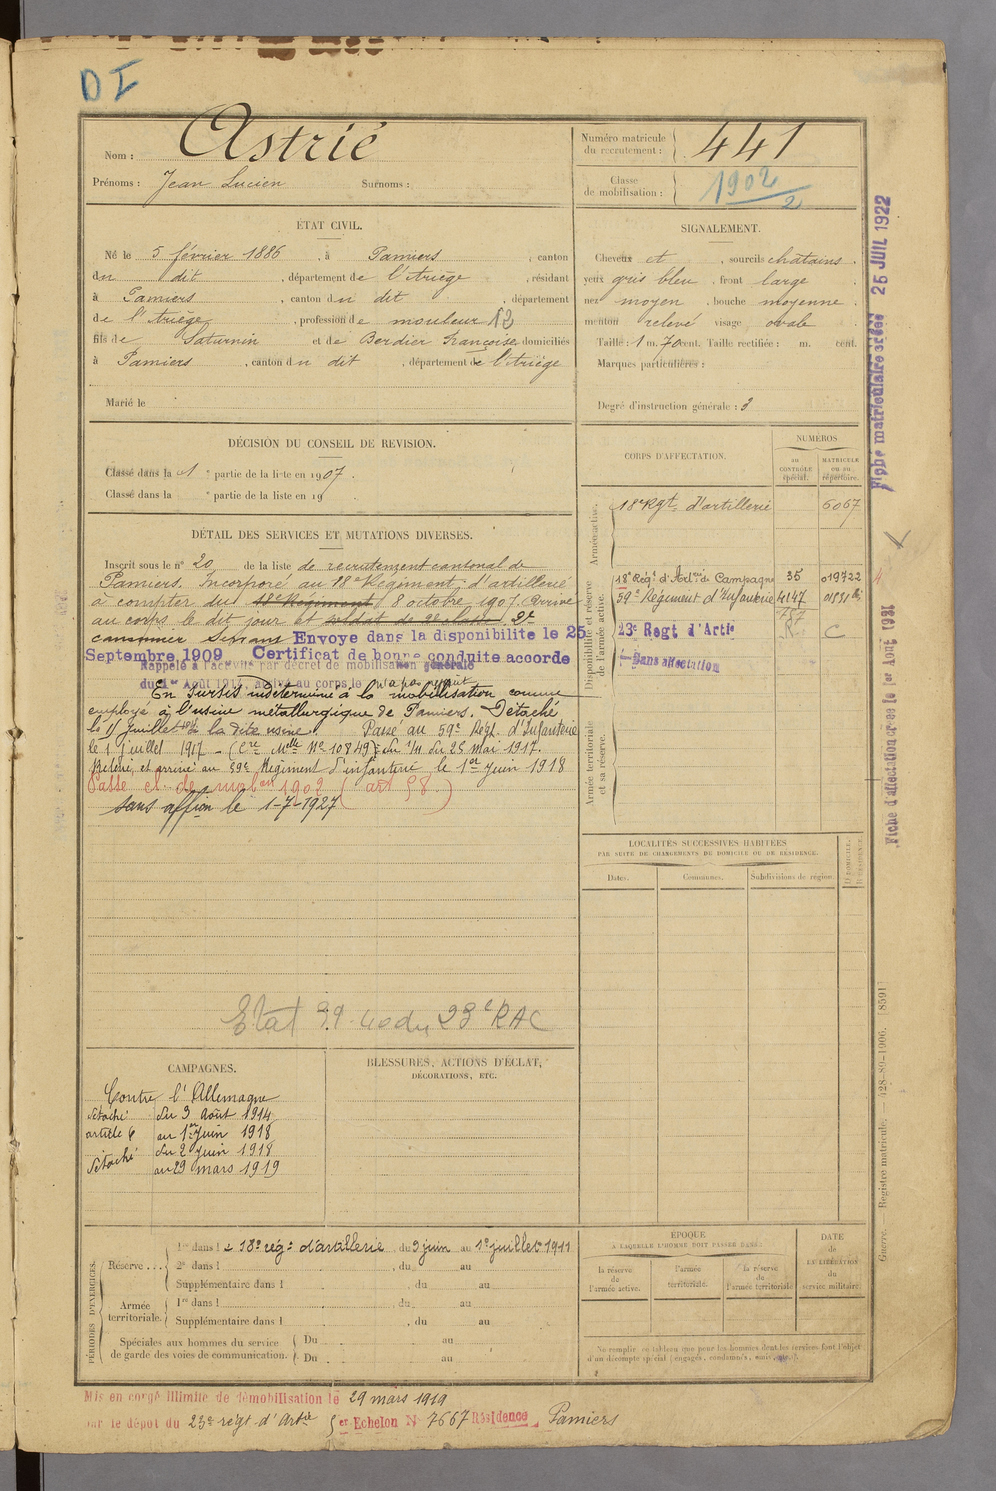 D I
Nom : Astrié
Prénoms : Jean Lucien Surnoms :
Numéro matricule du recrutement : 441
Classe de mobilisation : 1902/2
ÉTAT CIVIL.
Né le 5 février 1886, à Pamiers, canton
du dit, département de l'Ariège, résidant
à Pamiers, canton du dit, département
de l'Ariège, profession de mouleur 12
fils de Saturnin et de Berdier Françoise domiciliés
à Pamiers, canton du dit, département de l'Ariège
Marié le
SIGNALEMENT.
Cheveux et, sourcils chatains.
yeux gris bleu, front large
nez moyen, bouche moyenne
menton relevé visage ovale
Taille : 1 m. 70 cent. Taille rectifiée : m. cent.
Marques particulières :
Degré d'instruction générale : 3
DÉCISION DU CONSEIL DE REVISION.
Classé dans la 1e partie de la liste en 1907.
Classé dans la e partie de la liste en 19
DÉTAIL DES SERVICES ET MUTATIONS DIVERSES.
Inscrit sous le n° 20 de la liste de recrutement cantonal de
Pamiers. Incorporé au 18e Régiment d'artillerie
à compter du 18e Régiment 8 octobre 1907. Arrivé
au corps le dit jour et soldat de 2e classe 2e
canonnier servant Envoyé dans la disponibilité le 25
Septembre 1909 Certificat de bonne conduite accordé
Rappelé à l'activité par décret de mobilisation générale
du 1er Août 1914, arrivé au corps le
En sursis indéterminé à la mobilisation comme
employé à l'usine métallurgique de Pamiers. Détaché
le juillet à la dite usine. Passé au 59e Régt. d'Infanterie
le 1 juillet 1917 - (Cre Melle No 10849) du 25 Mai 1917.
et arrivé au 59e Régiment d'infanterie le 1er Juin 1918
Passé cl. de mobon 1902 (art 58)
sans affon le 1-7-1927
Etat 39-40 du 23e RAC
CORPS D'AFFECTATION.
NUMÉROS
au CONTRÔLE spécial.
MATRICULE ou au répertoire.
Armée active.
18e Rgt. d'artillerie 6067
Disponibilité et réserve de l'armée active.
18e Régt d'Artie de Campagne 35 019722
59e Régiment d'Infanterie 4147
23e Regt d'Artie C
Sans affectation
Armée territoriale et sa réserve.
LOCALITÉS SUCCESSIVES HABITÉES
PAR SUITE DE CHANGEMENTS DE DOMICILE OU DE RÉSIDENCE.
Dates. Communes. Subdivisions de région. D. DOMICILE. R. RÉSIDENCE.
CAMPAGNES.
Contre l'Allemagne
détaché du 3 Août 1914
article 6 au 1er Juin 1918
Détaché du 2 Juin 1918
au 29 mars 1919
BLESSURES, ACTIONS D'ÉCLAT,
DÉCORATIONS, ETC.
PÉRIODES D'EXERCICES.
Réserve...
1re dans le 18e rég. d'artillerie, du 9 juin au 1er juillet 1911
2e dans l , du au
Supplémentaire dans l , du au
Armée territoriale.
1re dans l , du au
Supplémentaire dans l , du au
Spéciales aux hommes du service de garde des voies de communication.
Du au
Du au
ÉPOQUE
À LAQUELLE L'HOMME DOIT PASSER DANS
la réserve de l'armée active.
l'armée territoriale.
la réserve de l'armée territoriale
DATE
DE LA LIBÉRATION
du
service militaire.
Ne remplir ce tableau que pour les hommes dont les services font l'objet
d'un décompte spécial (engagés, condamnés, omis, etc.).
Mis en congé illimité de démobilisation le 29 mars 1919
par le dépôt du 23e régt d'Artie er Echelon N° 7667 Résidence Pamiers
Fiche matriculaire créée 25 JUIL 1922
Fiche d'affectation créée le 1er Août 1931
Guerre. Registre matricule. — 428-89-1906. [8591]